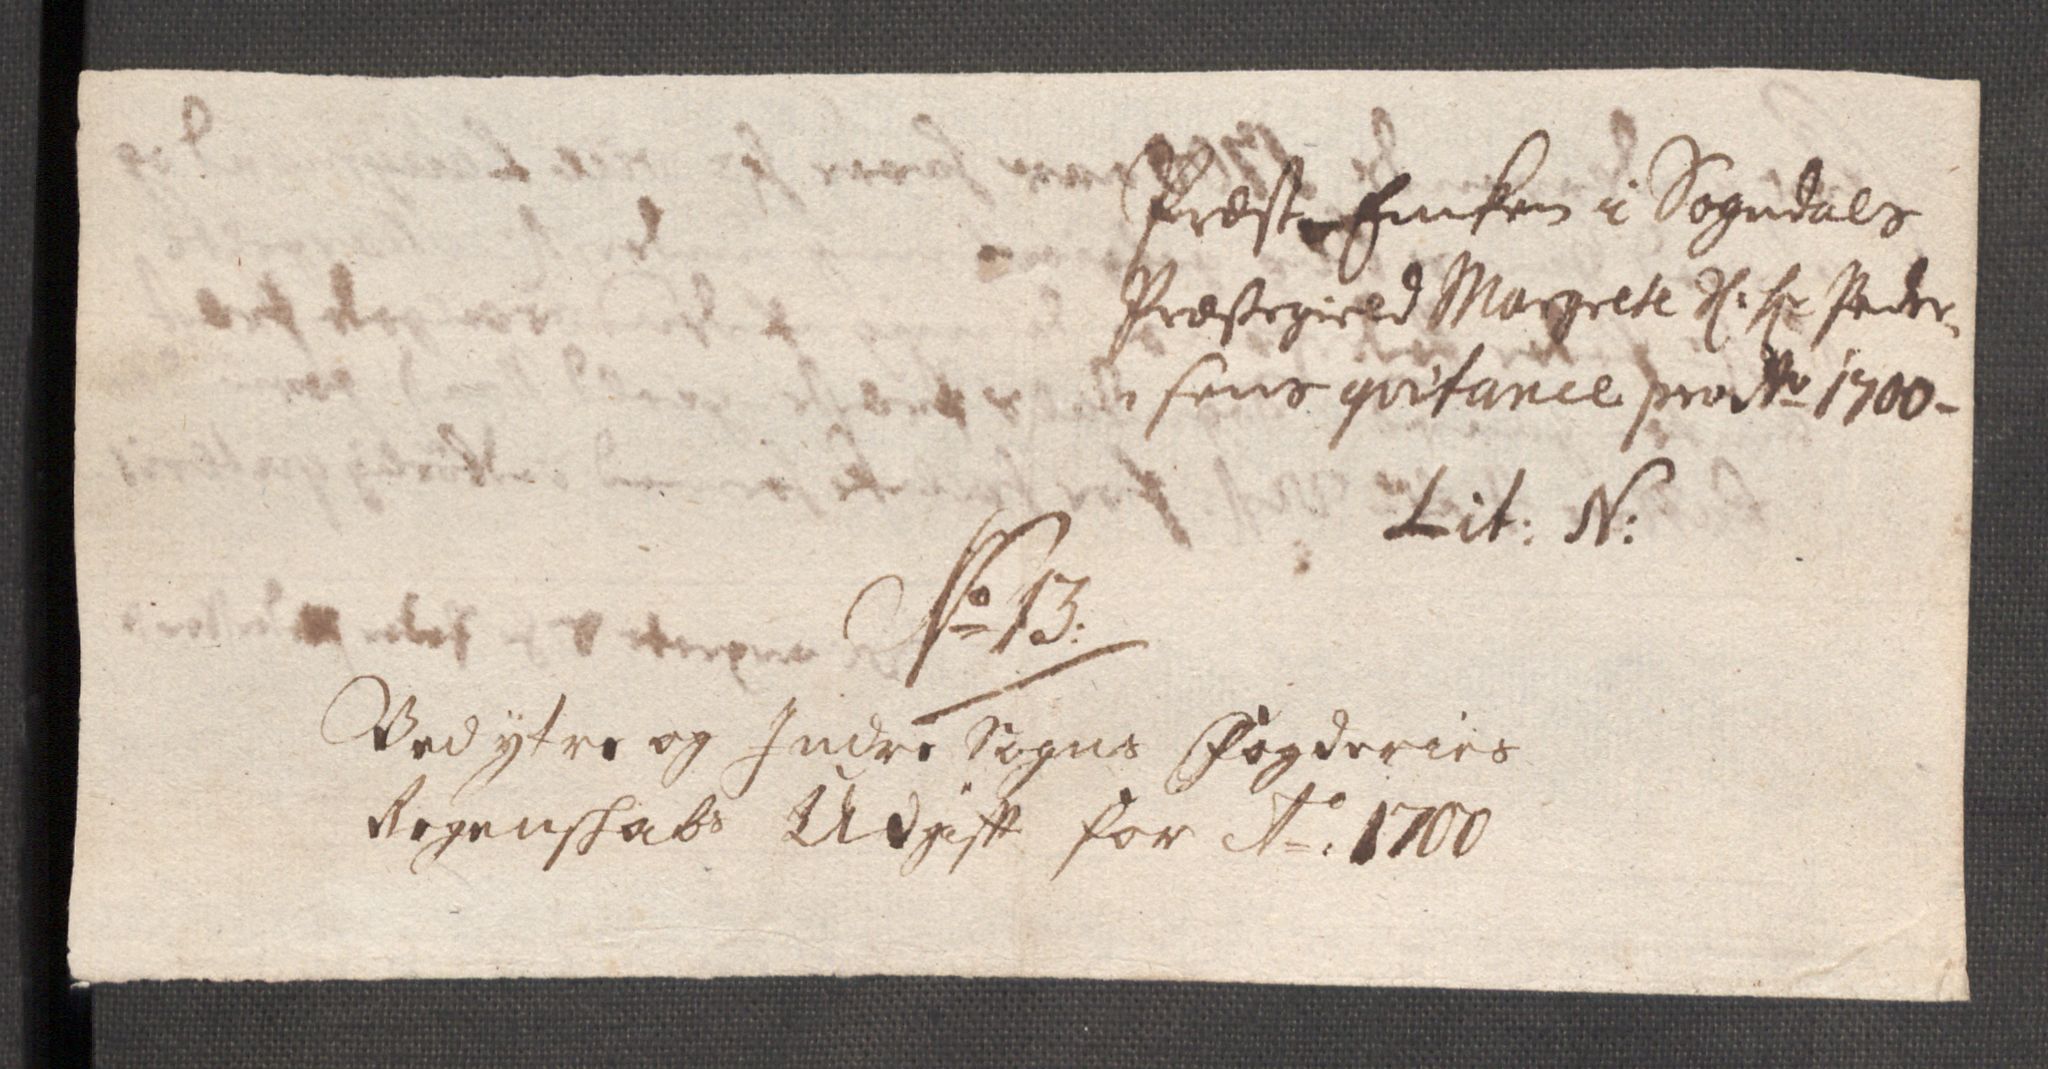 Præste Enken i Sogndals
Præstegield Margrete Sl: Hr Peder-
sens qvitance pro Ao 1700-
Lit: N:
No 13:
Ved ytre og Indre Sogns Fogderies
Regenskabs Udgift for Ao: 1700